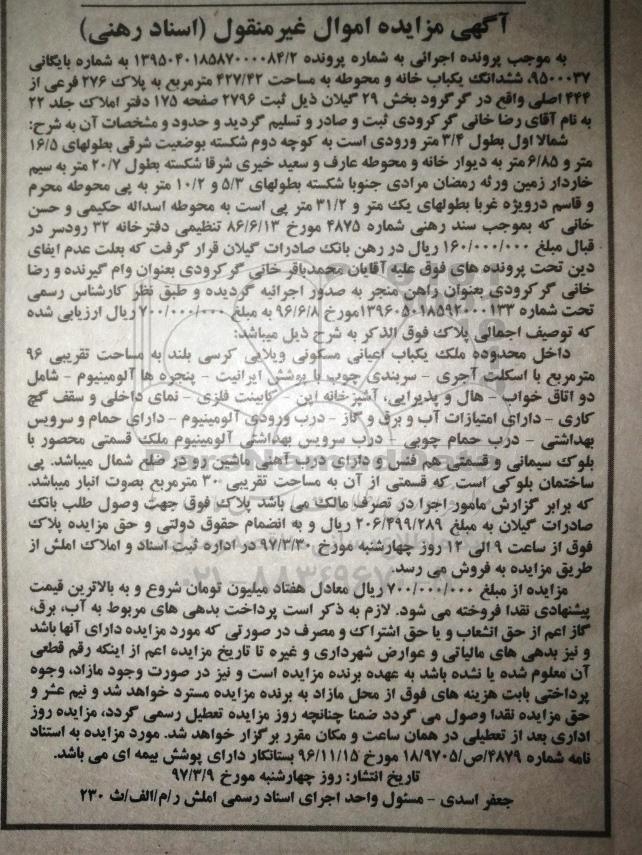 آگهی مزایده اموال غیرمنقول (اسناد رهنی)
به موجب پرونده اجرائی به شماره پرونده ۱۳۹۵۰۴۰۱۸۵۸۷۰۰۰۰۸۴/۲ به شماره بایگانی
۹۵۰۰۰۳۷، ششدانگ یکباب خانه و محوطه به مساحت ۴۲۷/۴۲ مترمربع به پلاک ۲۷۶ فرعی از
۴۴۴ اصلی واقع در گرگرود بخش ۲۹ گیلان ذیل ثبت ۲۷۹۶ صفحه ۱۷۵ دفتر املاک جلد ۲۲
به نام آقای رضا خانی گرکرودی ثبت و صادر و تسلیم گردید و حدود و مشخصات آن به شرح:
شمالا اول بطول ۳/۴ متر ورودی است به کوچه دوم شکسته بوضعیت شرقی بطولهای ۱۶/۵
متر و ۶/۸۵ متر به دیوار خانه و محوطه عارف و سعید خیری شرقا شکسته بطول ۲۰/۷ متر به سیم
خاردار زمین ورثه رمضان مرادی جنوبا شکسته بطولهای ۵/۳ و ۱۰/۲ متر به پی محوطه محرم
و قاسم درویژه غربا بطولهای یک متر و ۳۱/۲ متر پی است به محوطه اسداله حکیمی و حسن
خانی که بموجب سند رهنی شماره ۴۸۷۵ مورخ ۸۶/۶/۱۳ تنظیمی دفترخانه ۳۲ رودسر در
قبال مبلغ ۱۶۰/۰۰۰/۰۰۰ ریال در رهن بانک صادرات گیلان قرار گرفت که بعلت عدم ایفای
دین تحت پرونده های فوق علیه آقایان محمدباقر خانی گرکرودی بعنوان وام گیرنده و رضا
خانی گرکرودی بعنوان راهن منجر به صدور اجرائیه گردیده و طبق نظر کارشناس رسمی
تحت شماره ۱۳۹۶۰۵۰۱۸۵۹۲۰۰۰۱۳۳ مورخ ۹۶/۶/۸ به مبلغ ۷۰۰/۰۰۰/۰۰۰ ریال ارزیابی شده
که توصیف اجمالی پلاک فوق الذکر به شرح ذیل میباشد:
داخل محدوده ملک یکباب اعیانی مسکونی ویلایی کرسی بلند به مساحت تقریبی ۹۶
مترمربع با اسکلت آجری - سربندی چوب با پوشش ایرانیت - پنجره ها آلومینیوم - شامل
دو اتاق خواب - هال و پذیرایی، آشپزخانه اپن - کابینت فلزی - نمای داخلی و سقف گچ
کاری - دارای امتیازات آب و برق و گاز - درب ورودی آلومینیوم - دارای حمام و سرویس
بهداشتی - درب حمام چوبی - درب سرویس بهداشتی آلومینیوم ملک قسمتی محصور با
بلوک سیمانی و قسمتی هم فنس و دارای درب آهنی ماشین رو در ضلع شمال میباشد. پی
ساختمان بلوکی است که قسمتی از آن به مساحت تقریبی ۳۰ مترمربع بصوت انبار میباشد.
که برابر گزارش مامور اجرا در تصرف مالک می باشد پلاک فوق جهت وصول طلب بانک
صادرات گیلان به مبلغ ۲۰۶/۴۹۹/۲۸۹ ریال و به انضمام حقوق دولتی و حق مزایده پلاک
فوق از ساعت ۹ الی ۱۲ روز چهارشنبه مورخ ۹۷/۳/۳۰ در اداره ثبت اسناد و املاک املش از
طریق مزایده به فروش می رسد.
مزایده از مبلغ ۷۰۰/۰۰۰/۰۰۰ ریال معادل هفتاد میلیون تومان شروع و به بالاترین قیمت
پیشنهادی نقدا فروخته می شود. لازم به ذکر است پرداخت بدهی های مربوط به آب، برق،
گاز اعم از حق انشعاب و یا حق اشتراک و مصرف در صورتی که مورد مزایده دارای آنها باشد
و نیز بدهی های مالیاتی و عوارض شهرداری و غیره تا تاریخ مزایده اعم از اینکه رقم قطعی
آن معلوم شده یا نشده باشد به عهده برنده مزایده است و نیز در صورت وجود مازاد، وجوه
پرداختی بابت هزینه های فوق از محل مازاد به برنده مزایده مسترد خواهد شد و نیم عشر و
حق مزایده نقدا وصول می گردد ضمنا چنانچه روز مزایده تعطیل رسمی گردد، مزایده روز
اداری بعد از تعطیلی در همان ساعت و مکان مقرر برگزار خواهد شد. مورد مزایده به استناد
نامه شماره ۱۸/۹۷۰۵/ص/۴۸۷۹ مورخ ۹۶/۱۱/۱۵ بستانکار دارای پوشش بیمه ای می باشد.
تاریخ انتشار: روز چهارشنبه مورخ ۹۷/۳/۹
جعفر اسدی - مسئول واحد اجرای اسناد رسمی املش ر/م/الف/ث ۲۳۰